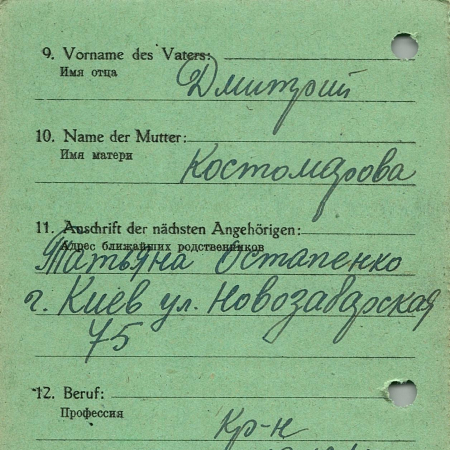 9. Vorname des Vaters:
Имя отца
Дмитрий
10. Name der Mutter:
Имя матери
Костомарова
11. Anschrift der nächsten Angehörigen:
Адрес ближайших родственников
Татьяна Остапенко
г. Киев ул. Новозабарская
75
12. Beruf:
Профессия
Кр-н